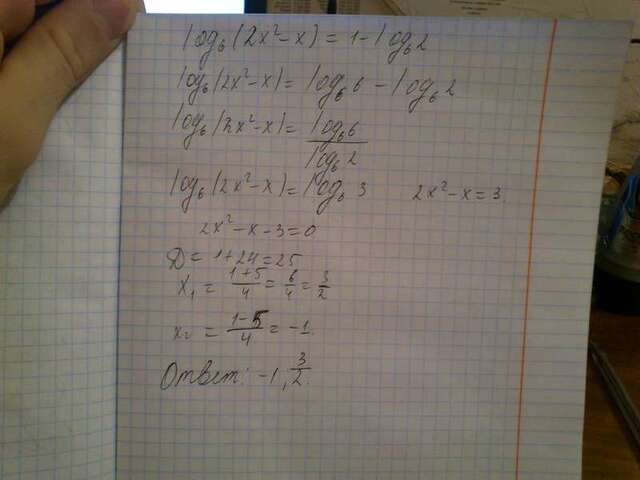 log₆(2x²-x)=1-log₆2
log₆(2x²-x)=log₆6-log₆2
log₆(2x²-x)=log₆6/log₆2
log₆(2x²-x)=log₆3 2x²-x=3
2x²-x-3=0
D=1+24=25
x₁=(1+5)/4=6/4=3/2
x₂=(1-5)/4=-1.
Ответ: -1, 3/2.